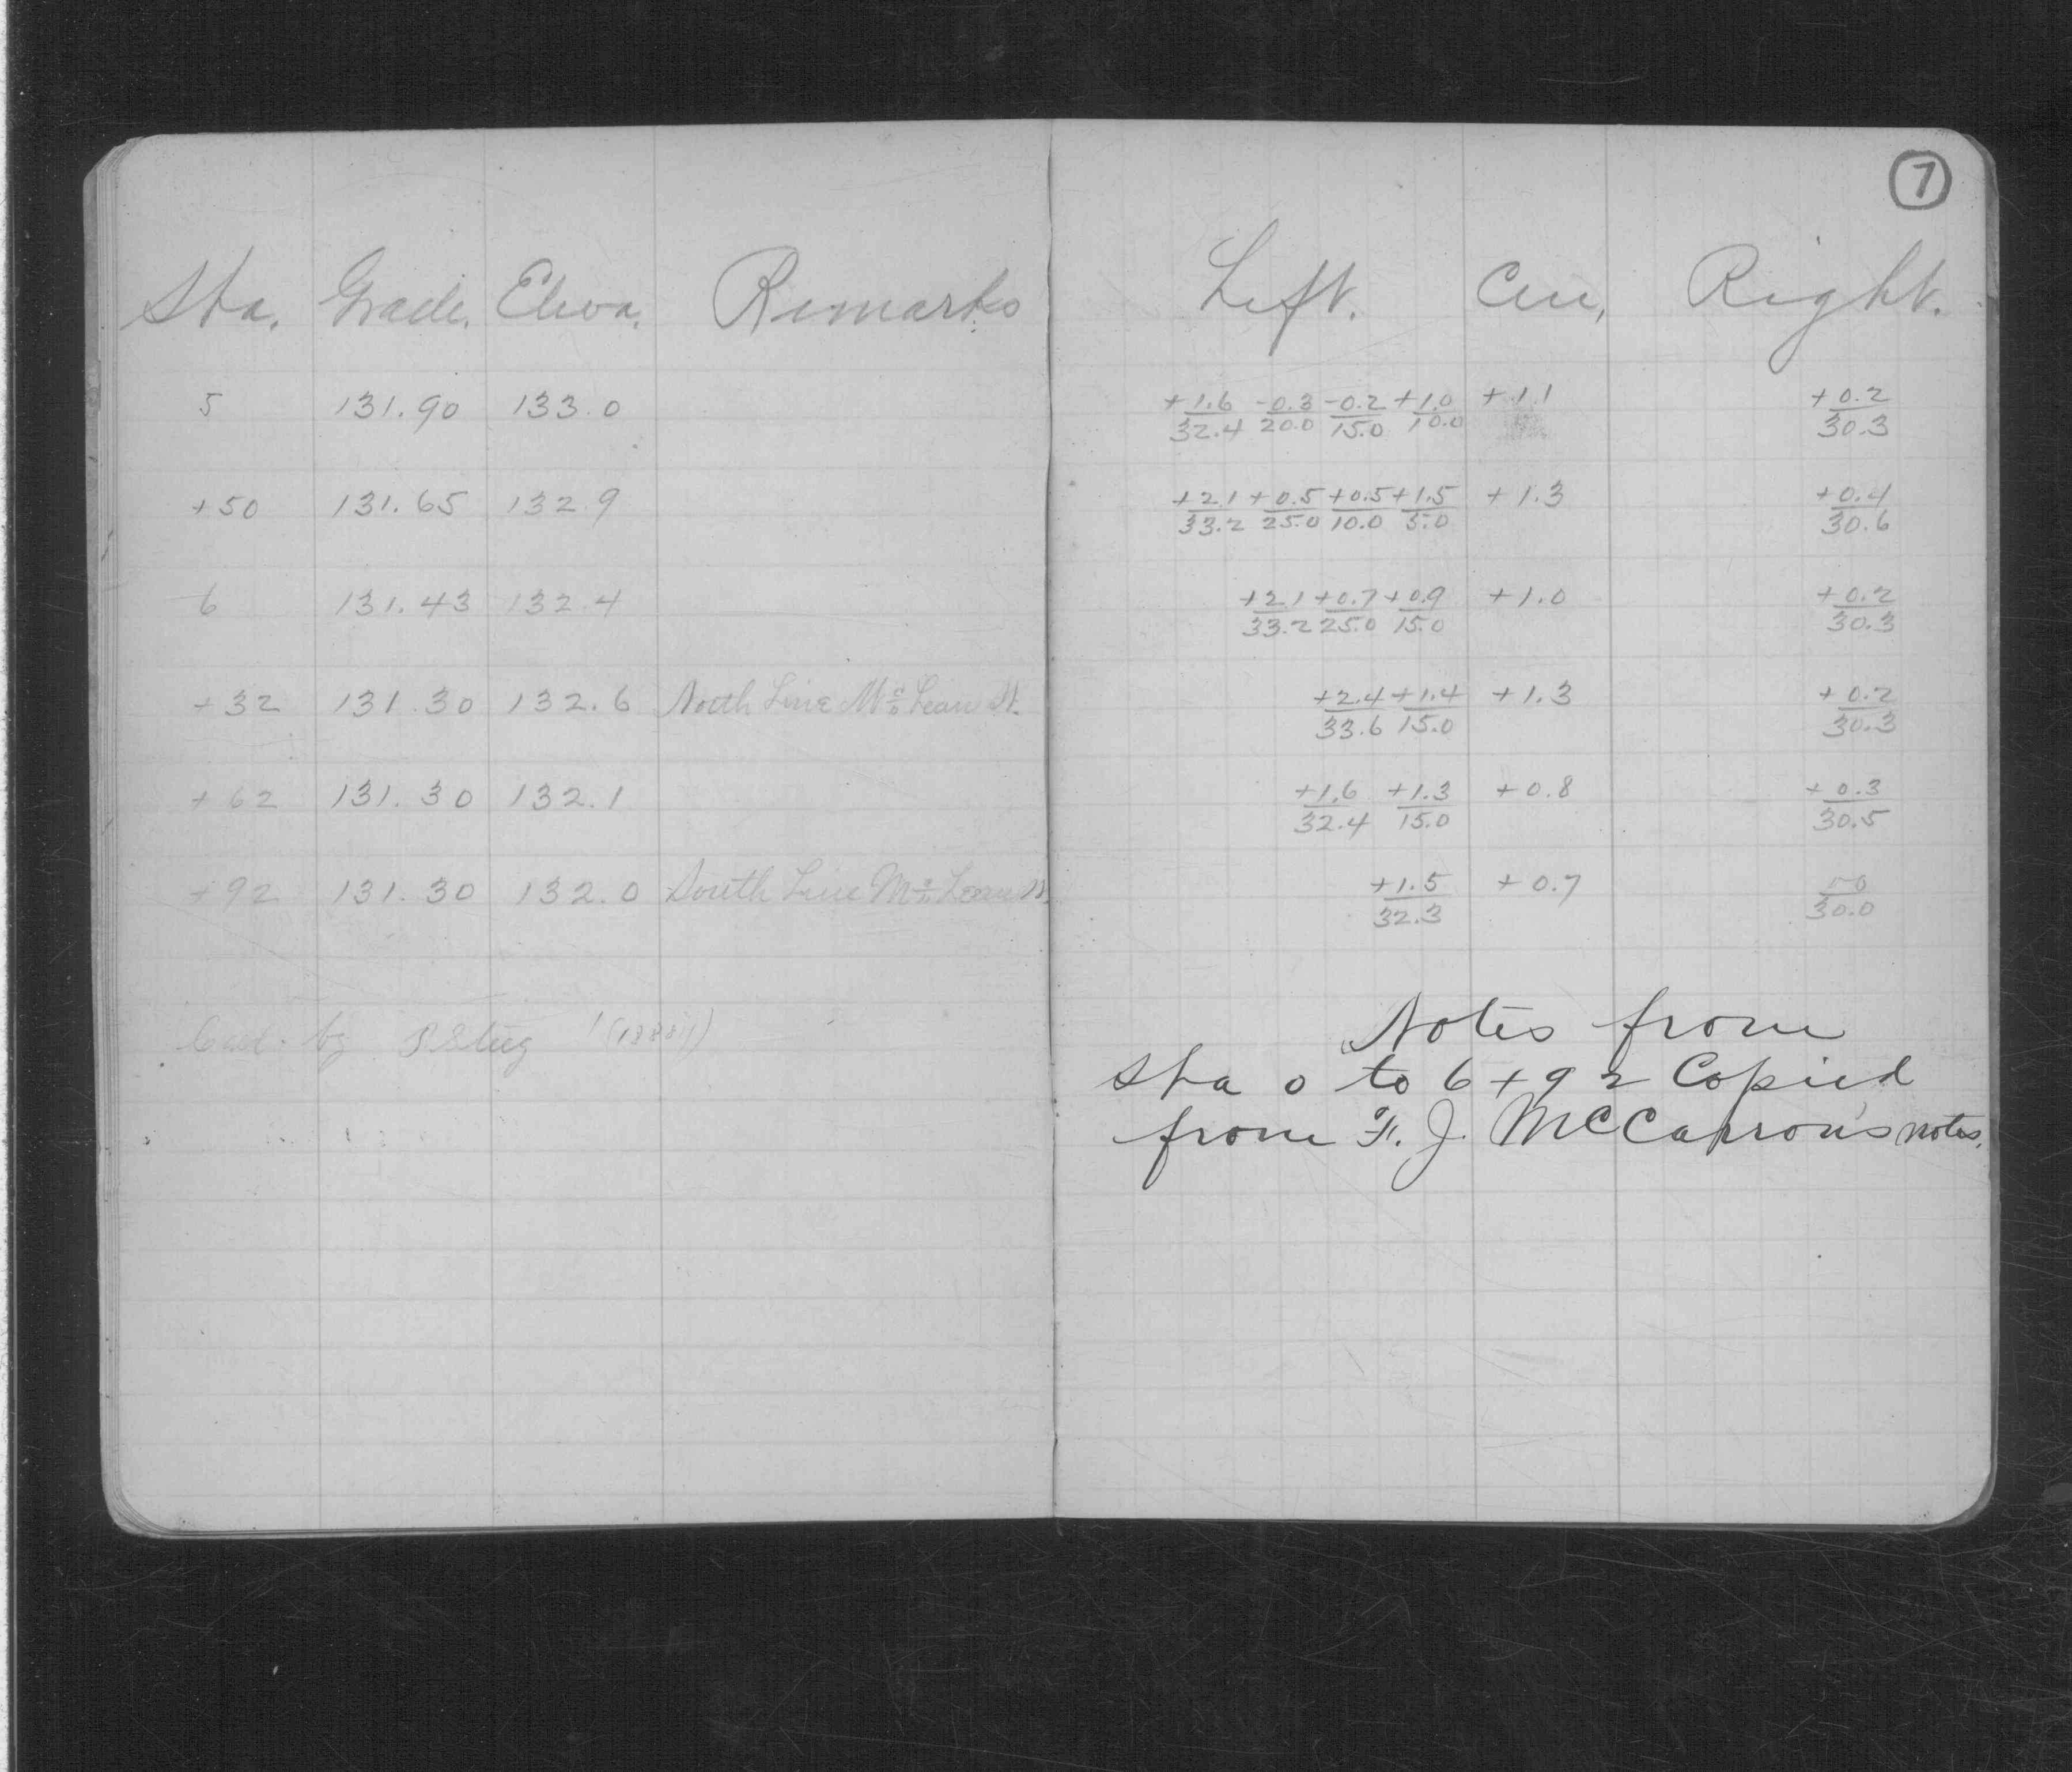 7
Sta. Grade. Eleva. Remarks Left. Cen. Right.
5 131.90 133.0 +1.6/32.4 -0.3/20.0 -0.2/15.0 +1.0/10.0 +1.1 +0.2/30.3
+50 131.65 132.9 +2.1/33.2 +0.5/25.0 +0.5/10.0 +1.5/5.0 +1.3 +0.4/30.6
6 131.43 132.4 +2.1/33.2 +0.7/25.0 +0.9/15.0 +1.0 +0.2/30.3
+32 131.30 132.6 North Line McLean St. +2.4/33.6 +1.4/15.0 +1.3 +0.2/30.3
+62 131.30 132.1 +1.6/32.4 +1.3/15.0 +0.8 +0.3/30.5
+92 131.30 132.0 South Line McLean St. +1.5/32.3 +0.7 /30.0
by
Notes from
Sta 0 to 6+92 Copied
from F. J. McCapron's notes.